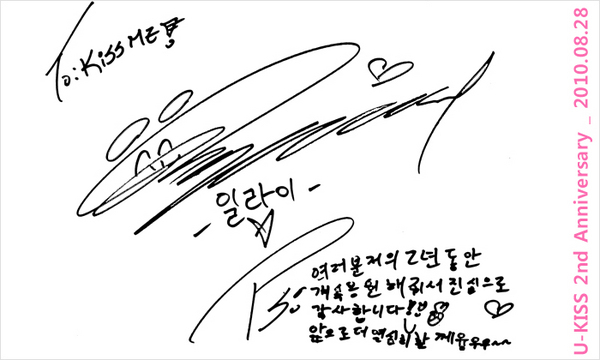 To: KissME!
-일라이-
Ps:
여러분 저의 2년 동안
계속 응원 해줘서 진심으로
감사합니다!!
앞으로 더 열심히 할께욥우우~~
U-KISS 2nd Anniversary _ 2010.08.28